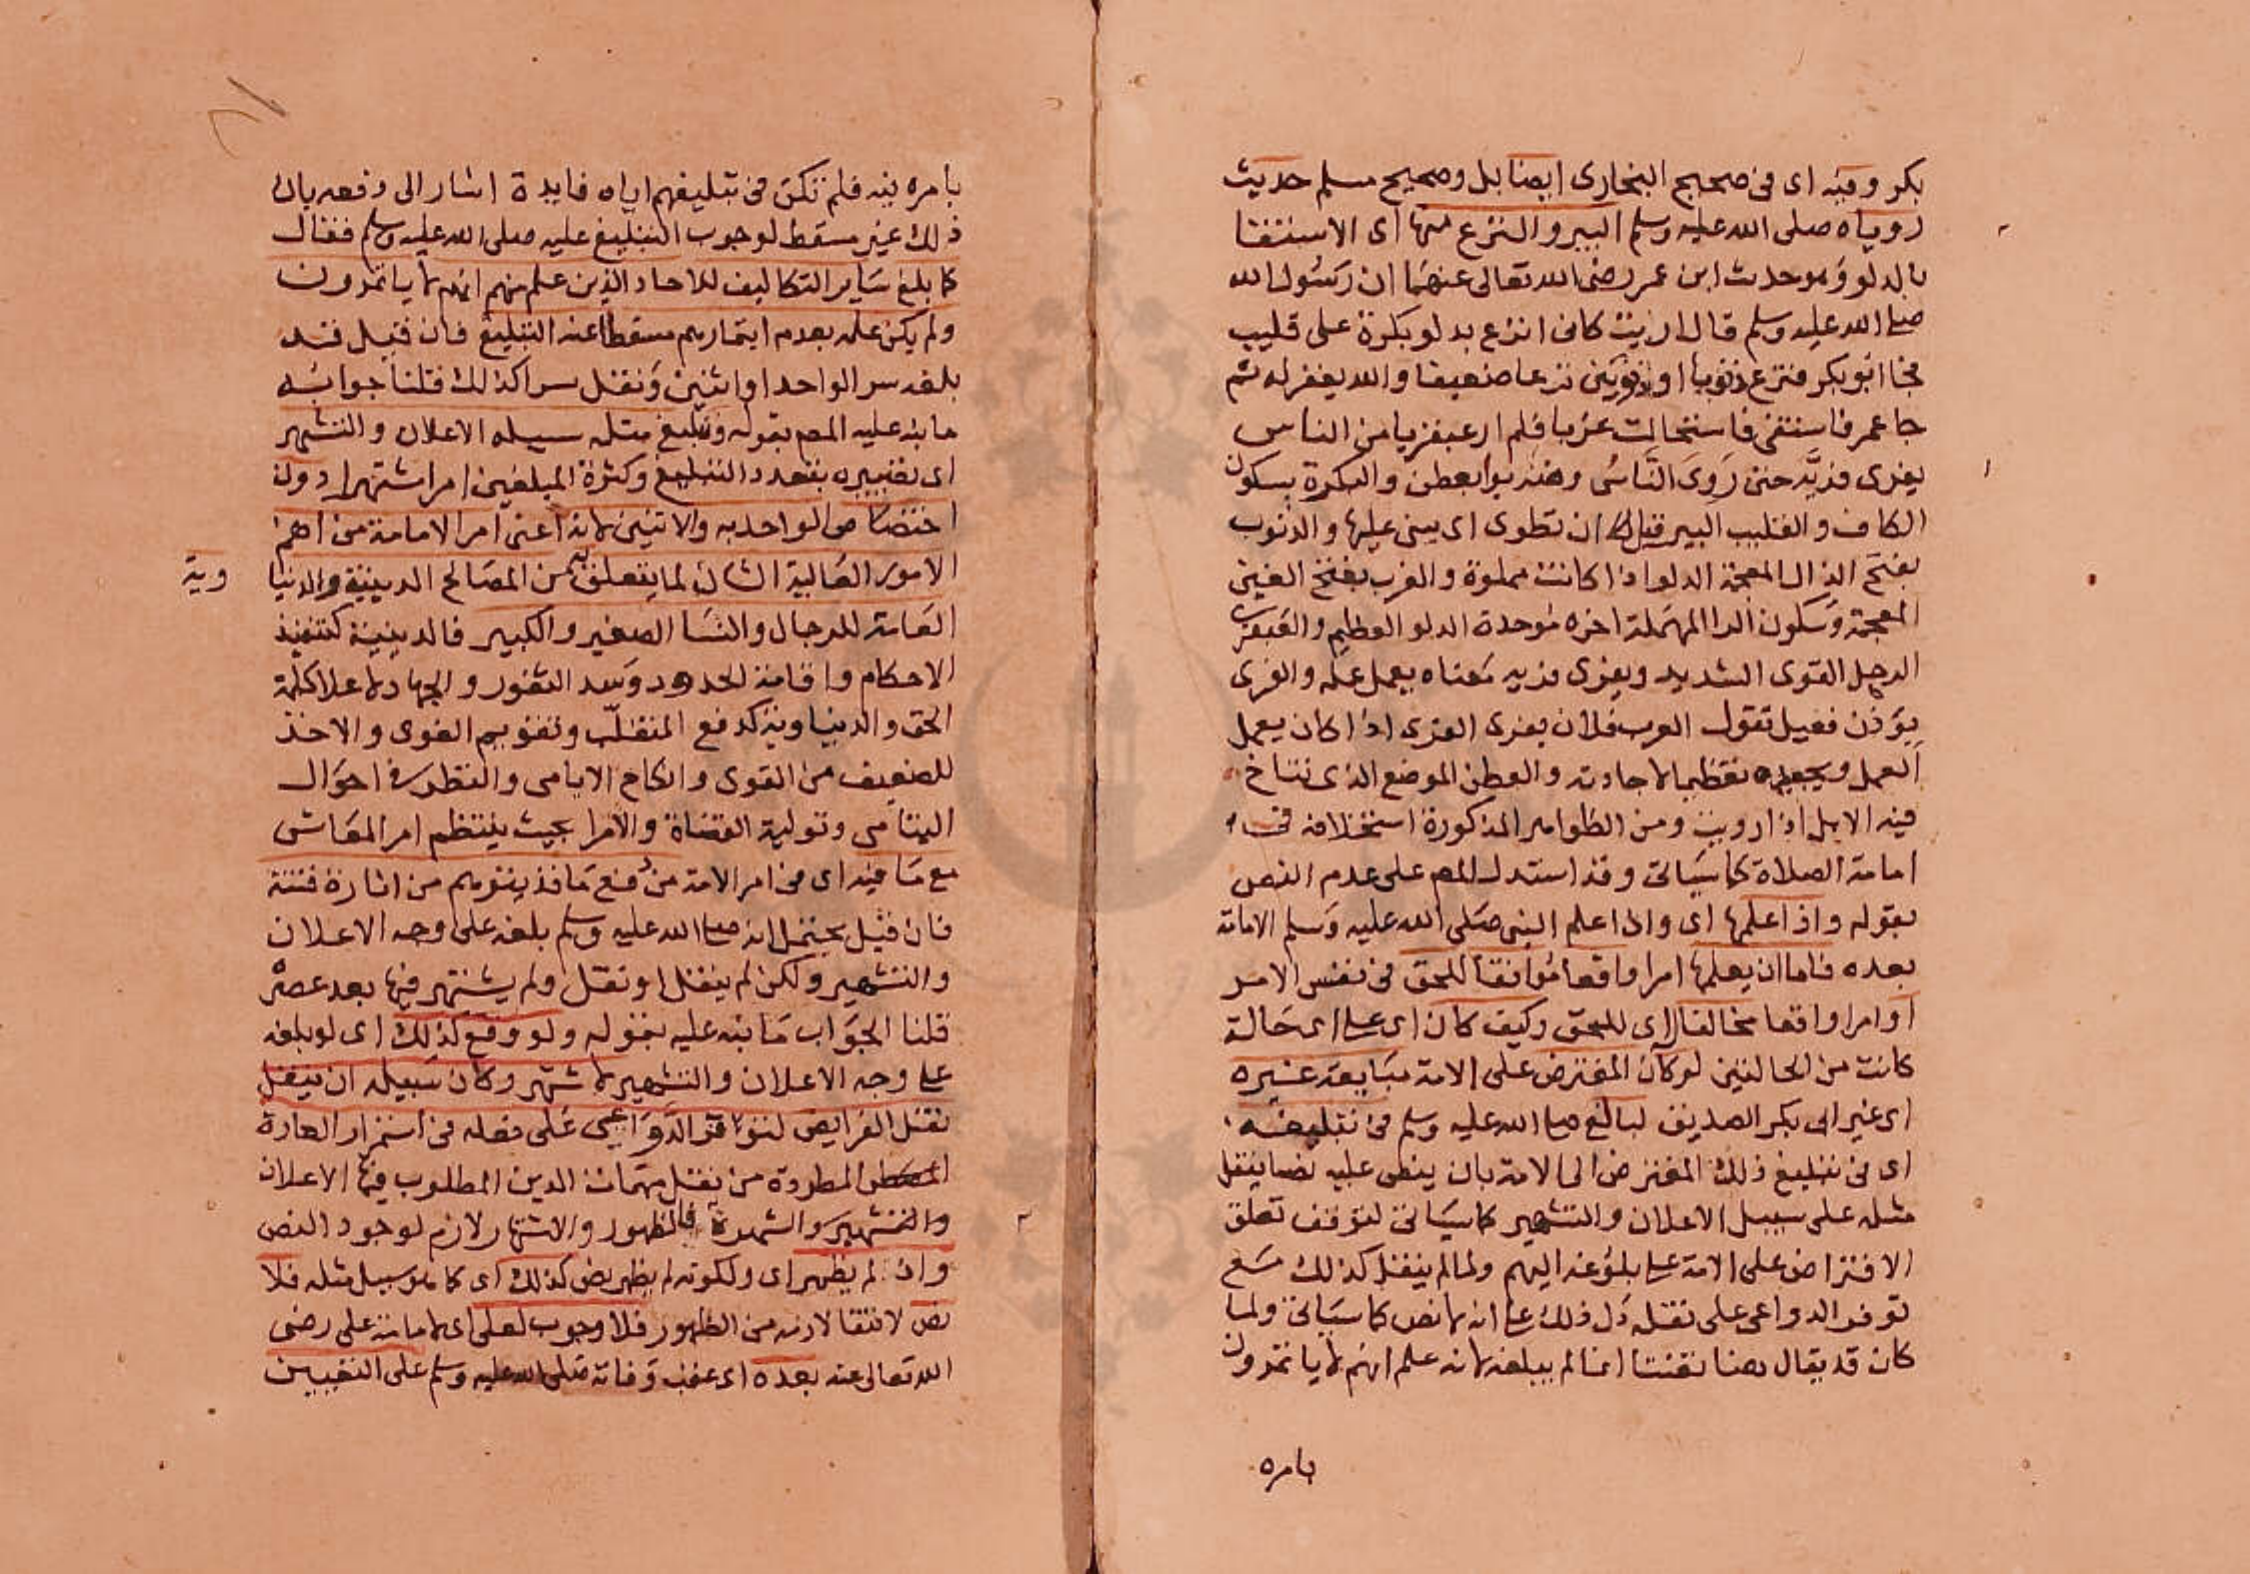 بكر وفيه اى فى صحيح البخارى ايضا بل وصحيح مسلم حديث
روياه صلى الله عليه وسلم البير والنزع منها اى الاستقا
بالدلو وهو حديث ابن عمر رضى الله تعالى عنهما ان رسول الله
صلى الله عليه وسلم قال اريت كانى انزع بدلو بكرة على قليب
فجا ابو بكر فنزع ذنوبا او ذنوبين نزعا ضعيفا والله يغفر له ثم
جا عمر فاستقى فاستحالت غربا فلم ار عبقريا من الناس
يفرى فريه حتى روى الناس وضربوا بعطن والبكرة بسكون
الكاف والقليب البير قبل ان تطوى اى يبنى عليها والذنوب
بفتح الذال المعجمة الدلو اذا كانت مملوة والغرب بفتح الغين
المعجمة وسكون الرا المهملة اخره موحدة الدلو العظيم والعبقرى
الرجل القوى الشديد ويفرى فريه معناه يعمل عمله والفرى
بوزن فعيل تقول العرب فلان يفرى الفرى اذا كان يعمل
العمل ويجيده تعظيما لاجادته والعطن الموضع الذى تناخ
فيه الابل اذا رويت ومن الظواهر المذكورة استخلافه فى
امامة الصلاة كما سياتى وقد استدل المص على عدم النص
بقوله واذا علمها اى واذا علم النبى صلى الله عليه وسلم الامامة
بعده فاما ان يعلمها امرا واقعا موافقا للحق فى نفس الامر
او امرا واقعا مخالفا اى للحق وكيف كان اى على اى حالة
كانت من الحالتين لو كان المفترض على الامة مبايعة غيره
اى غير ابى بكر الصديق لبالغ صلى الله عليه وسلم فى تبليغه
اى فى تبليغ ذلك المفترض الى الامة بان ينص عليه نصا ينقل
مثله على سبيل الاعلان والتشهير كما سياتى لتوقف تعلق
الافتراض على الامة على بلوغه اليهم ولما لم ينقل كذلك مع
توفر الدواعى على نقله دل ذلك على انه لا نص كما سياتى ولما
كان قد يقال هنا انما لم يبلغه لانه علم انهم لا ياتمرون
بامره
بامره فيه فلم تكن فى تبليغهم اياه فايدة اشار الى دفعه بان
ذلك غير مسقط لوجوب التبليغ عليه صلى الله عليه وسلم فقال
كما بلغ ساير التكاليف للاحاد الذين علم منهم انهم لا ياتمرون
ولم يكن علمه بعدم ايتمارهم مسقطا عنه التبليغ فان قيل قد
بلغه سرا لواحد او اثنين ونقل سرا كذلك قلنا جوابه
ما نبه عليه المص بقوله وتبليغ مثله سبيله الاعلان والتشهير
اى بتعدد التبليغ وكثرة المبلغين امرا شتهرا دون
اختصاص الواحد به والاثنين لانه اعنى امر الامامة من اهم
الامور العالية الشان لما يتعلق به من المصالح الدينية والدنيا وية
العامة للرجال والنسا الصغير والكبير فالدينية كتنفيذ
الاحكام واقامة الحدود وسد الثغور والجهاد لاعلا كلمة
الحق والدنياوية كدفع المتغلب والاخذ
للضعيف من القوى وانكاح الايامى والنظر فى احوال
اليتامى وتولية القضاة والامرا بحيث ينتظم امر المعاش
مع ما فيه اى فى امر الامة من دفع ما قد يتوهم من اثارة فتنة
فان قيل يحتمل انه صلى الله عليه وسلم بلغه على وجه الاعلان
والتشهير ولكن لم ينقل او نقل ولم يشتهر فيما بعد عصره
قلنا الجواب ما نبه عليه بقوله ولو وقع كذلك اى لو بلغه
على وجه الاعلان والتشهير لاشتهر وكان سبيله ان ينقل
نقل الفرايض لتوفر الدواعى على فى استمرار العادة
المطردة من نقل مهمات الدين المطلوب فيها الاعلان
والتشهير والشهرة فالظهور والاشتهار لازم لوجود النص
واذ لم يظهر اى ولكونه لم يظهر نص كذلك اى كما هو سبيل مثله فلا
نص لانتفا لازمه من الظهور فلا وجوب لعلى اى لامامة على رضى
الله تعالى عنه بعده اى عقب وفاته صلى الله عليه وسلم على التعيين